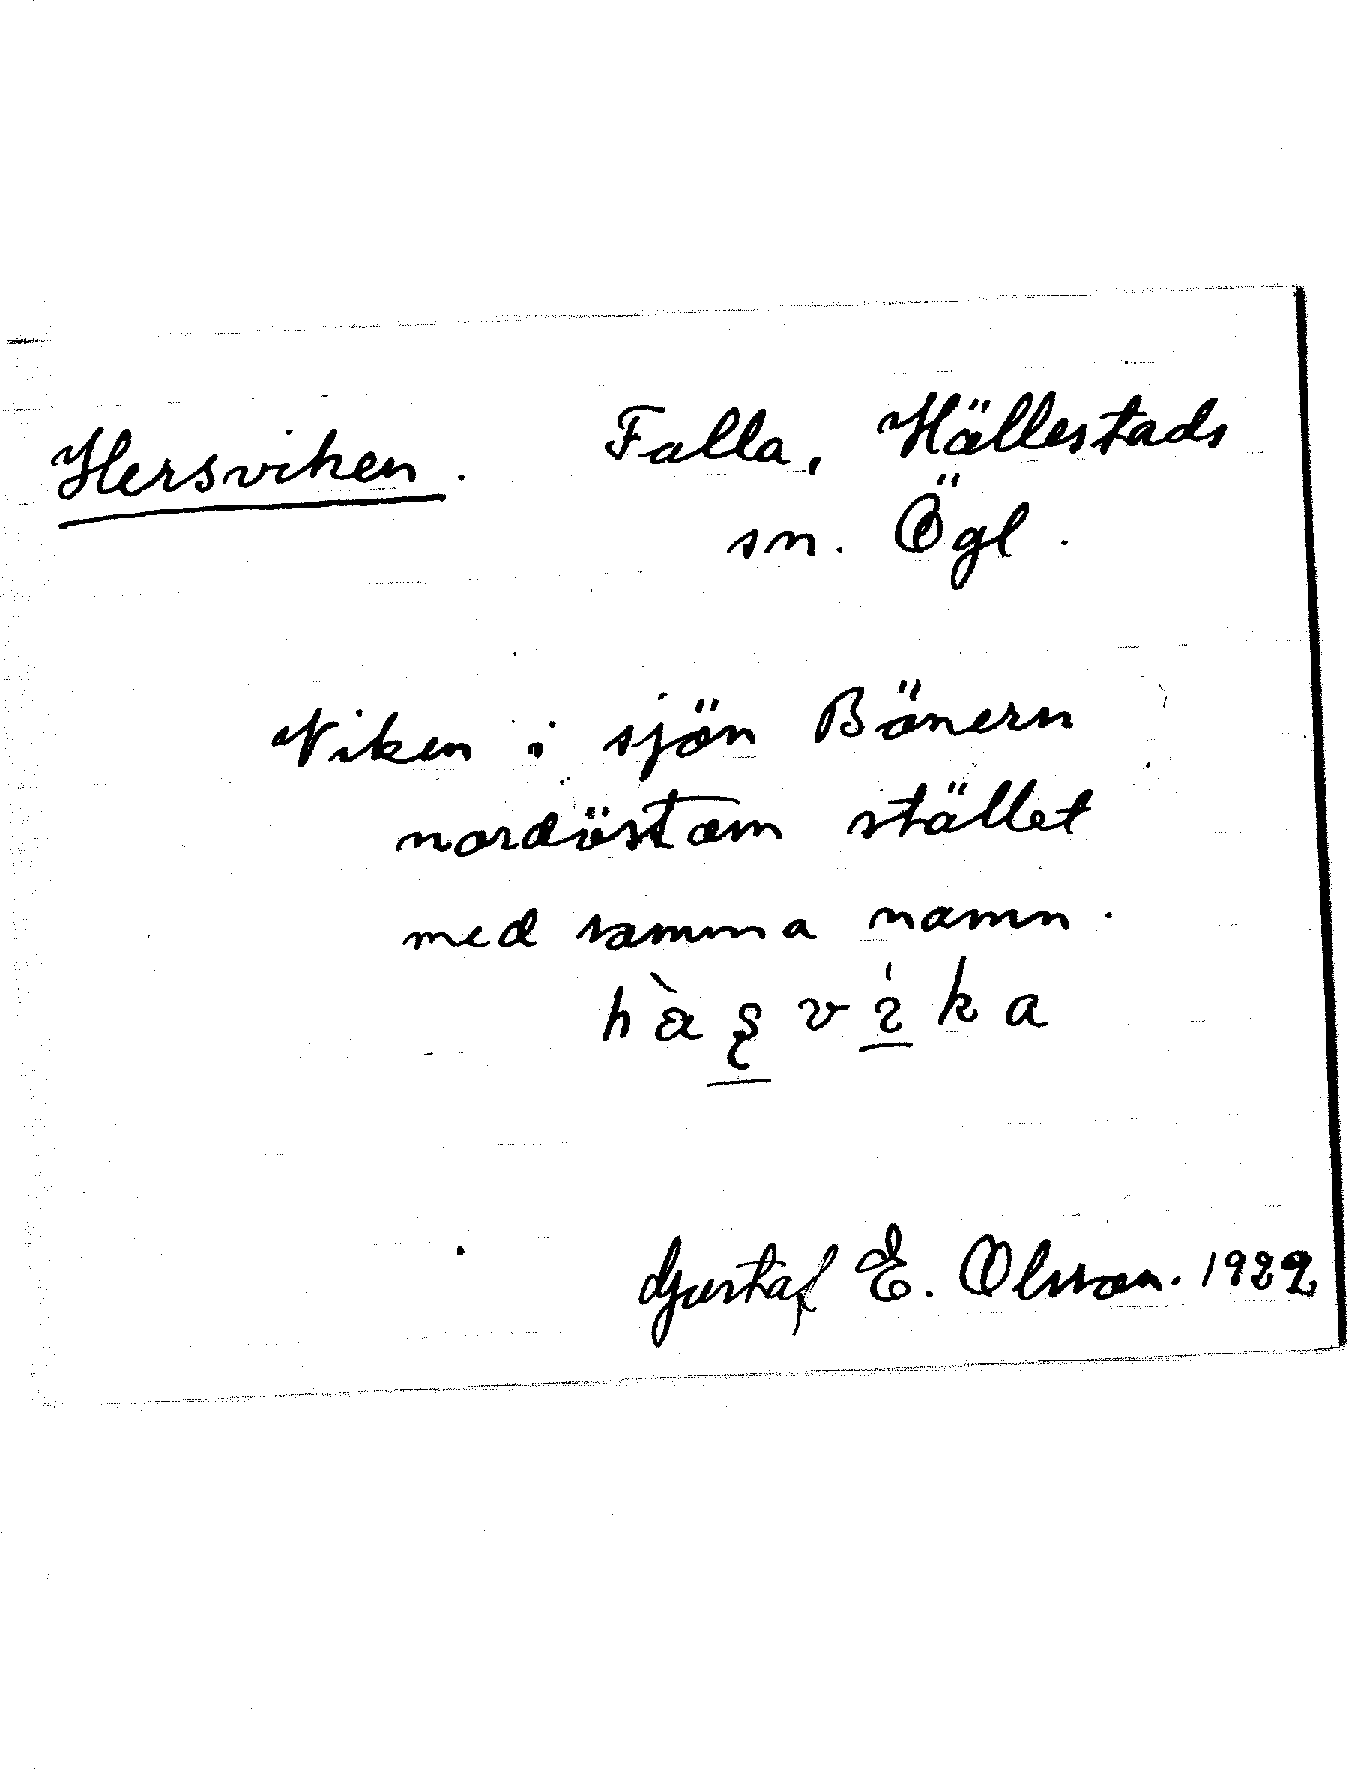 Hersviken. Falla, Hällestads
sn. Ögl.
Viken i sjön Bönern
nordöst om stället
med samma namn.
hæ̀ʂvı̇́ka
Gustaf E. Olsson. 1922